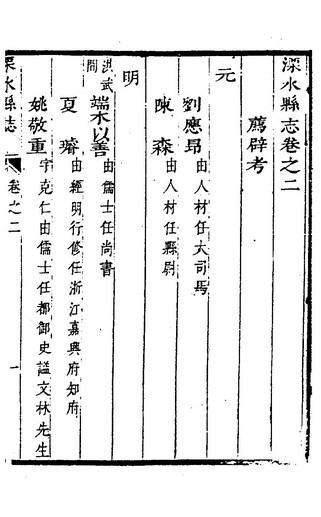 溧水縣志卷之二
薦辟考
元
劉應昂 由人材任大司馬
陳森 由人材任縣尉
明
洪武間 端木以善 由儒士任尚書
夏 由經明行修任浙江嘉興府知府
姚敬重 字克仁由儒士任都御史謚文林先生
溧水縣志 卷之二 一